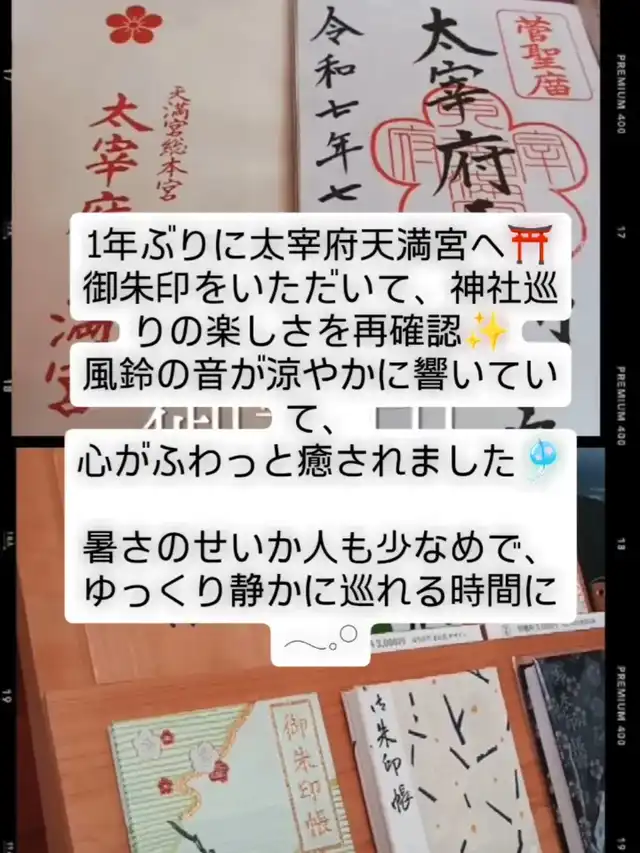 天満宮総本宮
太宰府
満宮
令和七年七
太宰府
菅聖庿
1年ぶりに太宰府天満宮へ⛩️
御朱印をいただいて、神社巡
りの楽しさを再確認✨
風鈴の音が涼やかに響いてい
て、
心がふわっと癒されました🎐
暑さのせいか人も少なめで、
ゆっくり静かに巡れる時間に
𓂃𓈒𓏸
御朱印帳
御朱印帳
PREMIUM 400
PREMIUM 400
PREMIUM 400
17
17
18
18
19
19